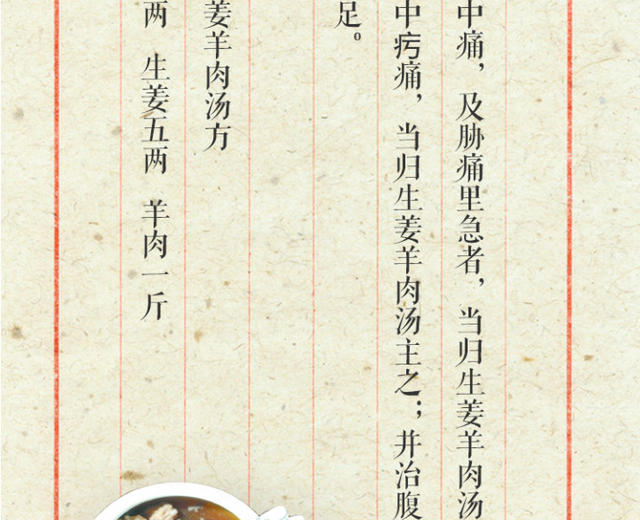 中痛，及胁痛里急者，当归生姜羊肉汤
中疠痛，当归生姜羊肉汤主之；并治腹
足。
姜羊肉汤方
两　生姜五两　羊肉一斤